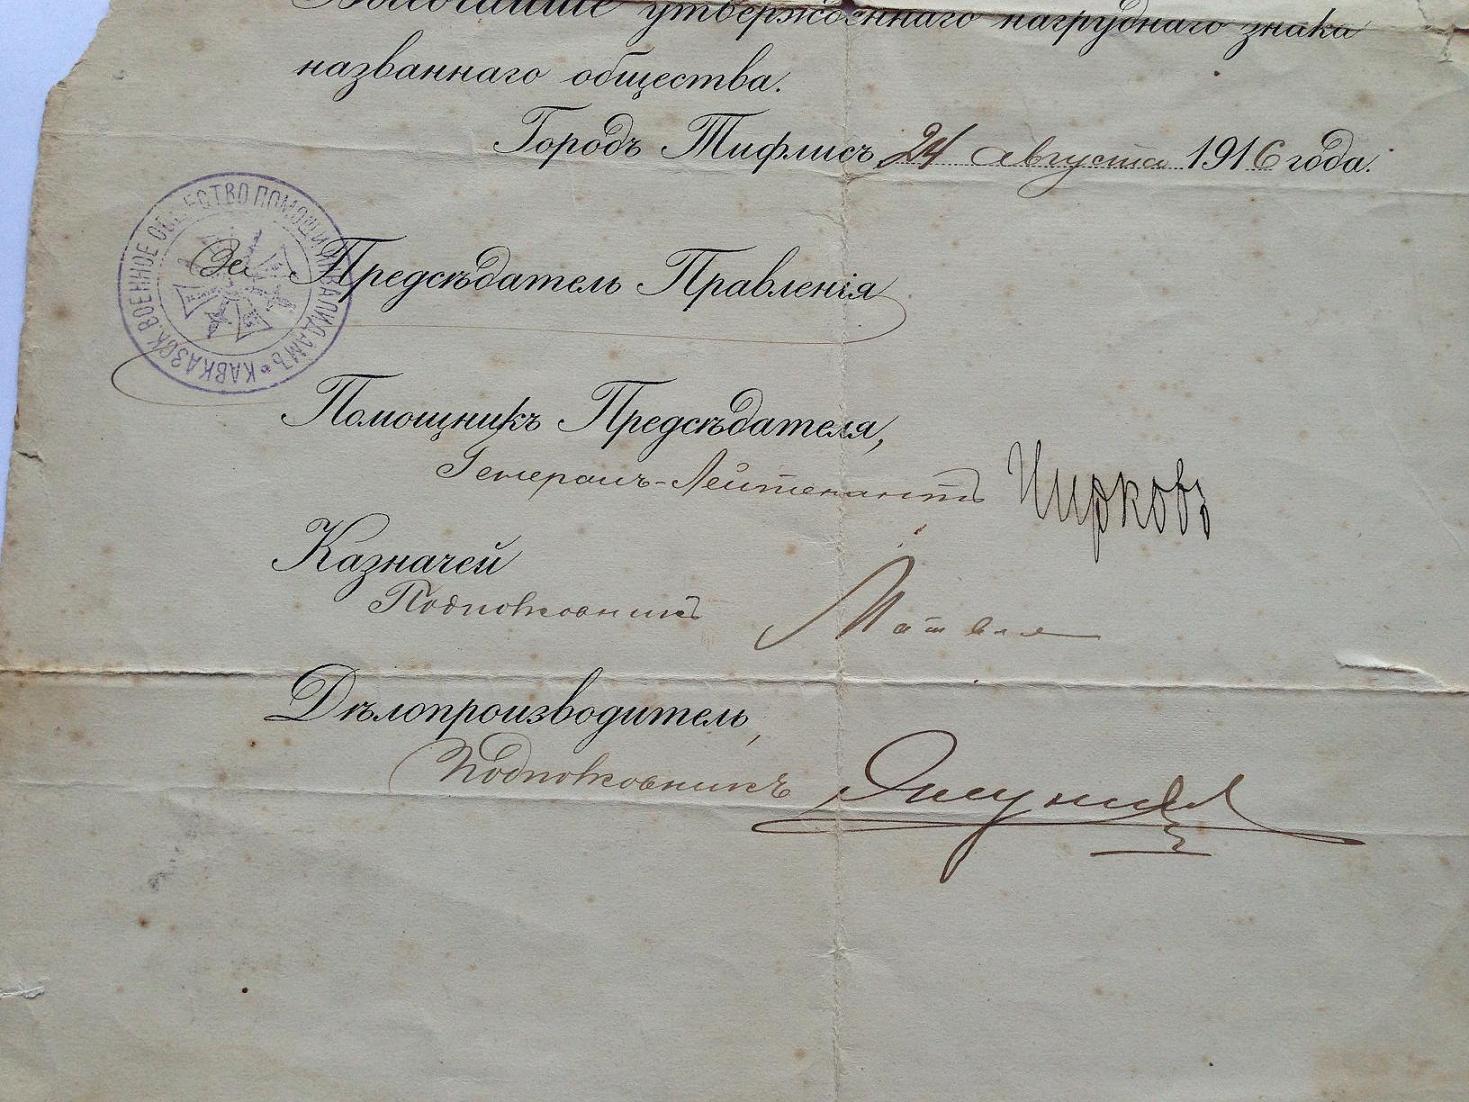 Высочайше утвержденнаго нагруднаго знака
названнаго общества.
Городъ Тифлисъ 24 августа 1916 года.
КАВКАЗСК. ВОЕННОЕ ОБЩЕСТВО ПОМОЩИ ИНВАЛИДАМЪ
За Предсѣдатель Правленія
Помощникъ Предсѣдателя,
Генералъ-Лейтенантъ Чирковъ
Казначей
Подполковникъ
Дѣлопроизводитель,
Подполковникъ